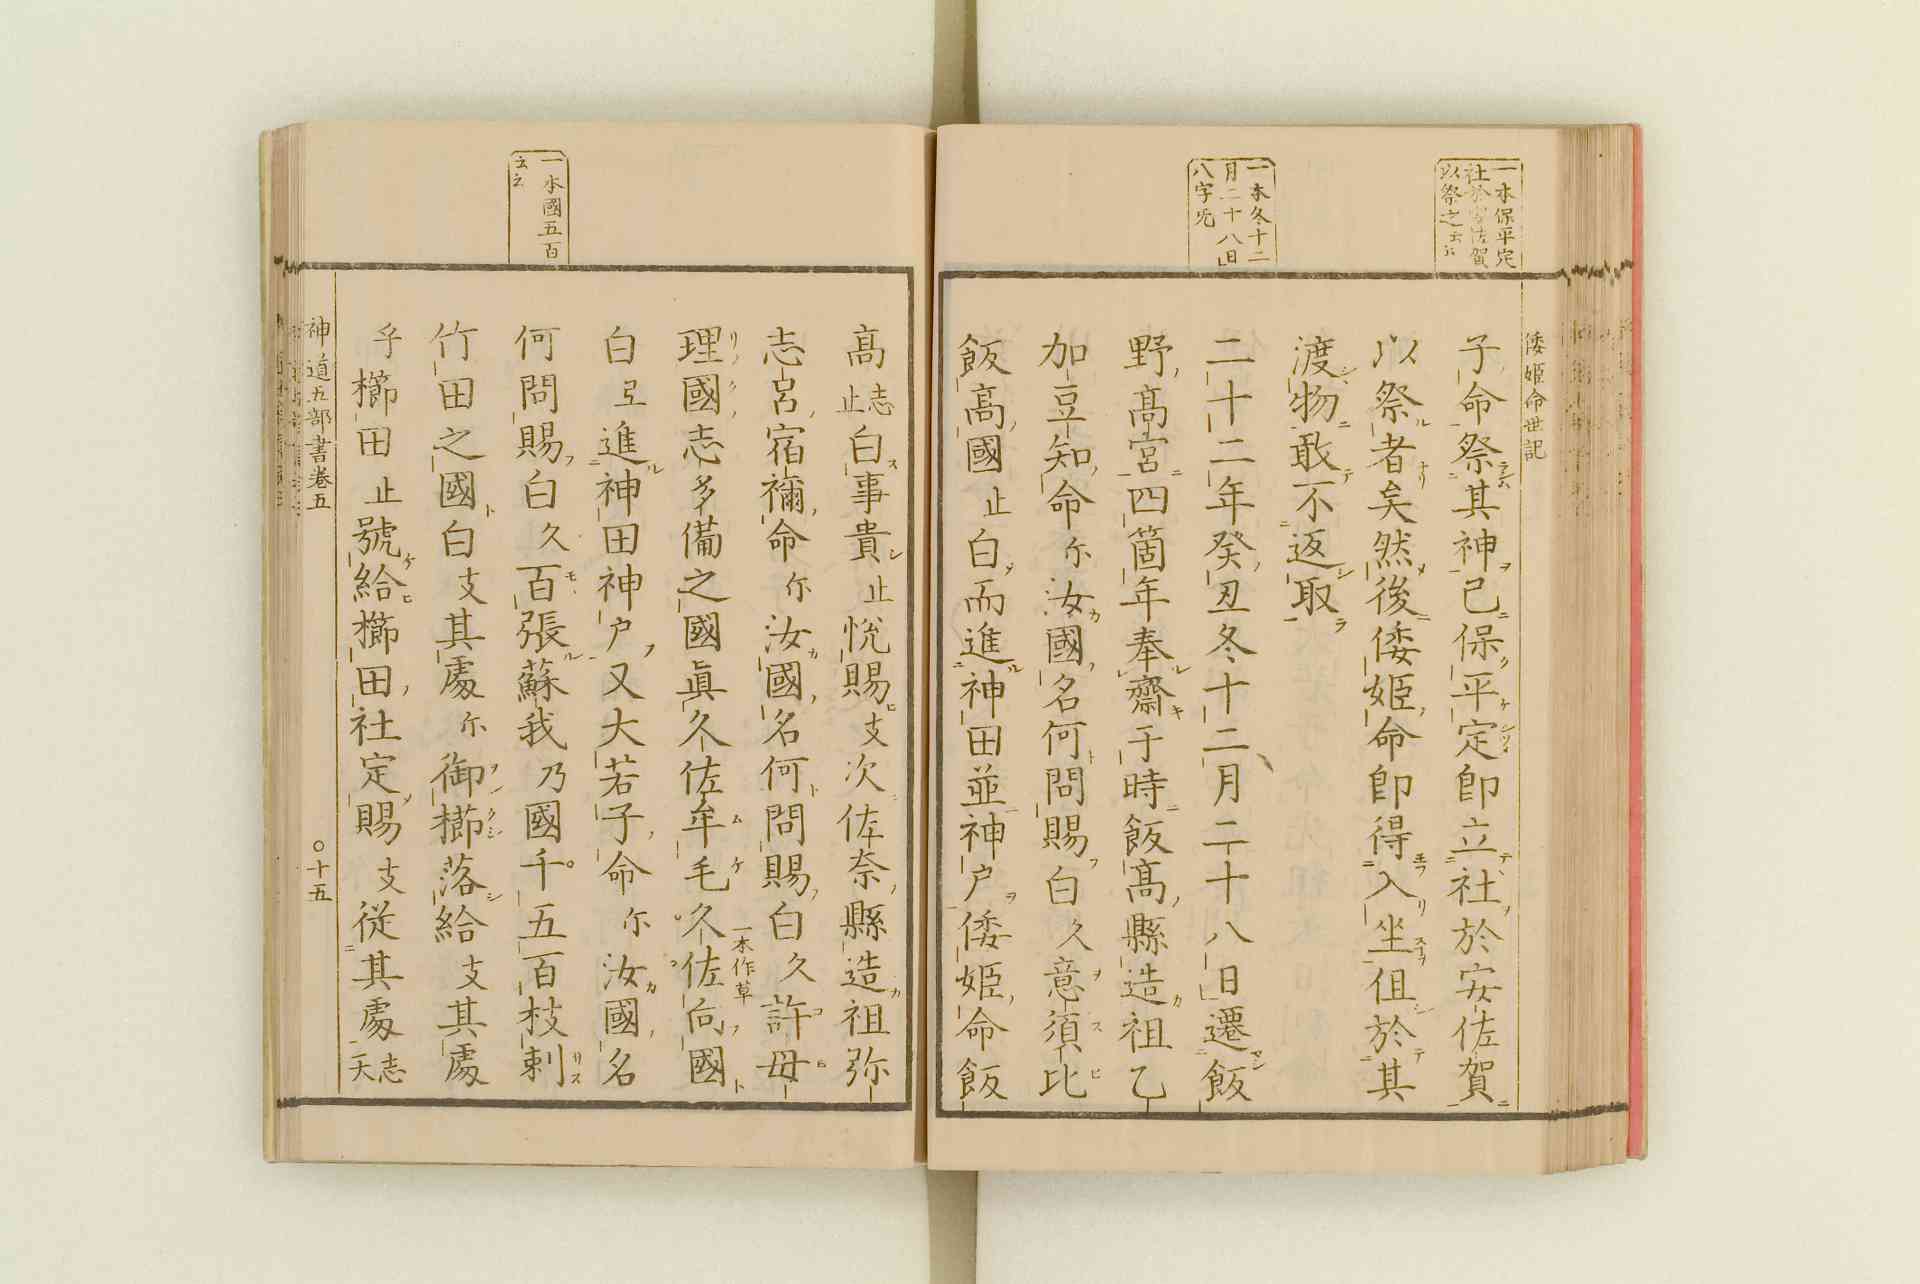 倭姫命世記
一本保平定
社於安佐賀
以祭之云云
一本冬十二
月二十八日
八字无
子命祭其神己保平定即立社於安佐賀
以祭者矣然後倭姫命即得入坐但於其
渡物敢不返取
二十二年癸丑冬十二月二十八日遷飯
野高宮四箇年奉齋于時飯高縣造祖乙
加豆知命尓汝國名何問賜白久意須比
飯高國止白而進神田並神戸倭姫命飯
一本國五百
云云
高志止白事貴止悅賜支次佐奈縣造祖弥
志呂宿禰命尓汝國名何問賜白久許母
理國志多備之國眞久佐牟毛久佐向國
一本作草
白弖進神田神戸又大若子命尓汝國名
何問賜白久百張蘇我乃國千五百枝刺
竹田之國白支其處尓御櫛落給支其處
乎櫛田止號給櫛田社定賜支從其處志天
神道五部書卷五
〇十五